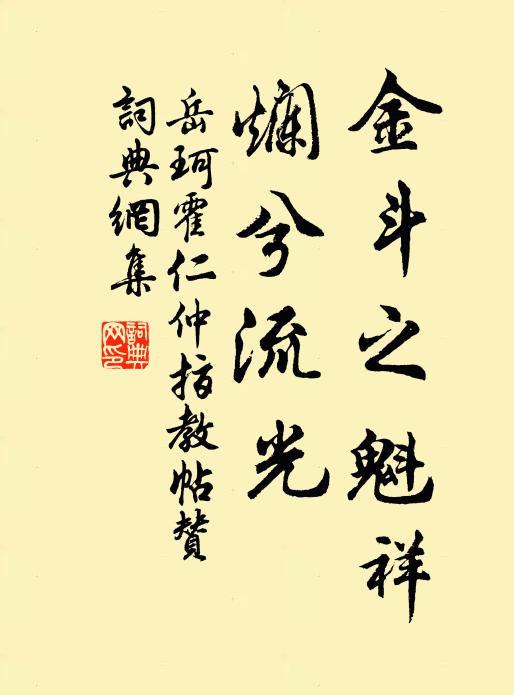 金斗之魁祥
爛兮流光
岳珂霍仁仲指教帖贊
詞典網集
詞典網印